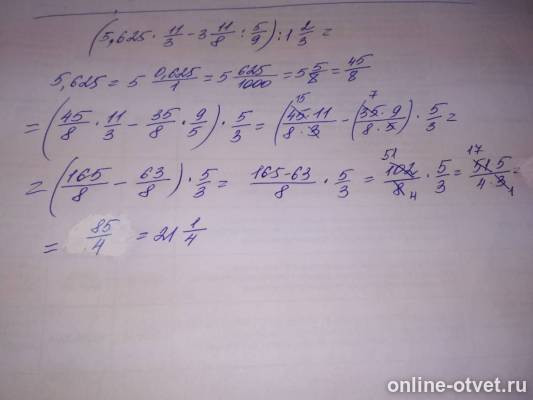 (5,625 · 11/3 − 3 11/8 : 5/9) : 1 2/3 =
5,625 = 5 0,625/1 = 5 625/1000 = 5 5/8 = 45/8
= (45/8 · 11/3 − 35/8 · 9/5) · 5/3 = (15 45·11/8·3 − (7 35·9/8·5) · 5/3 =
= (165/8 − 63/8) · 5/3 = 165-63/8 · 5/3 = 51 102/8 4 · 5/3 = 17 51 5/4·3 1 =
= 85/4 = 21 1/4
online-otvet.ru